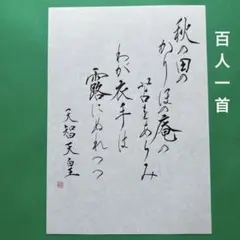 百人一首
秋の田の
かりほの庵の
苫をあらみ
わが衣手は
露にぬれつつ
天智天皇